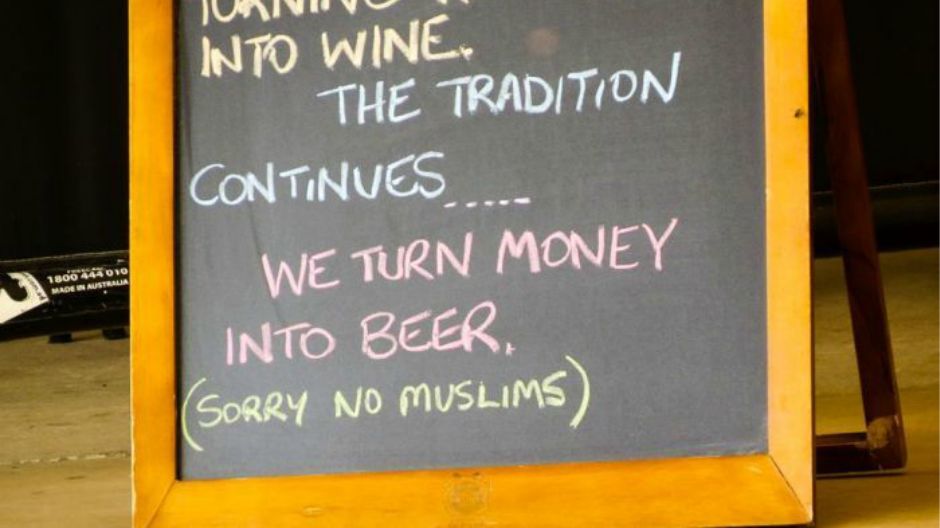 TURNING
INTO WINE.
THE TRADITION
CONTINUES.....
WE TURN MONEY
INTO BEER.
(SORRY NO MUSLIMS)
1800 444 010
MADE IN AUSTRALIA